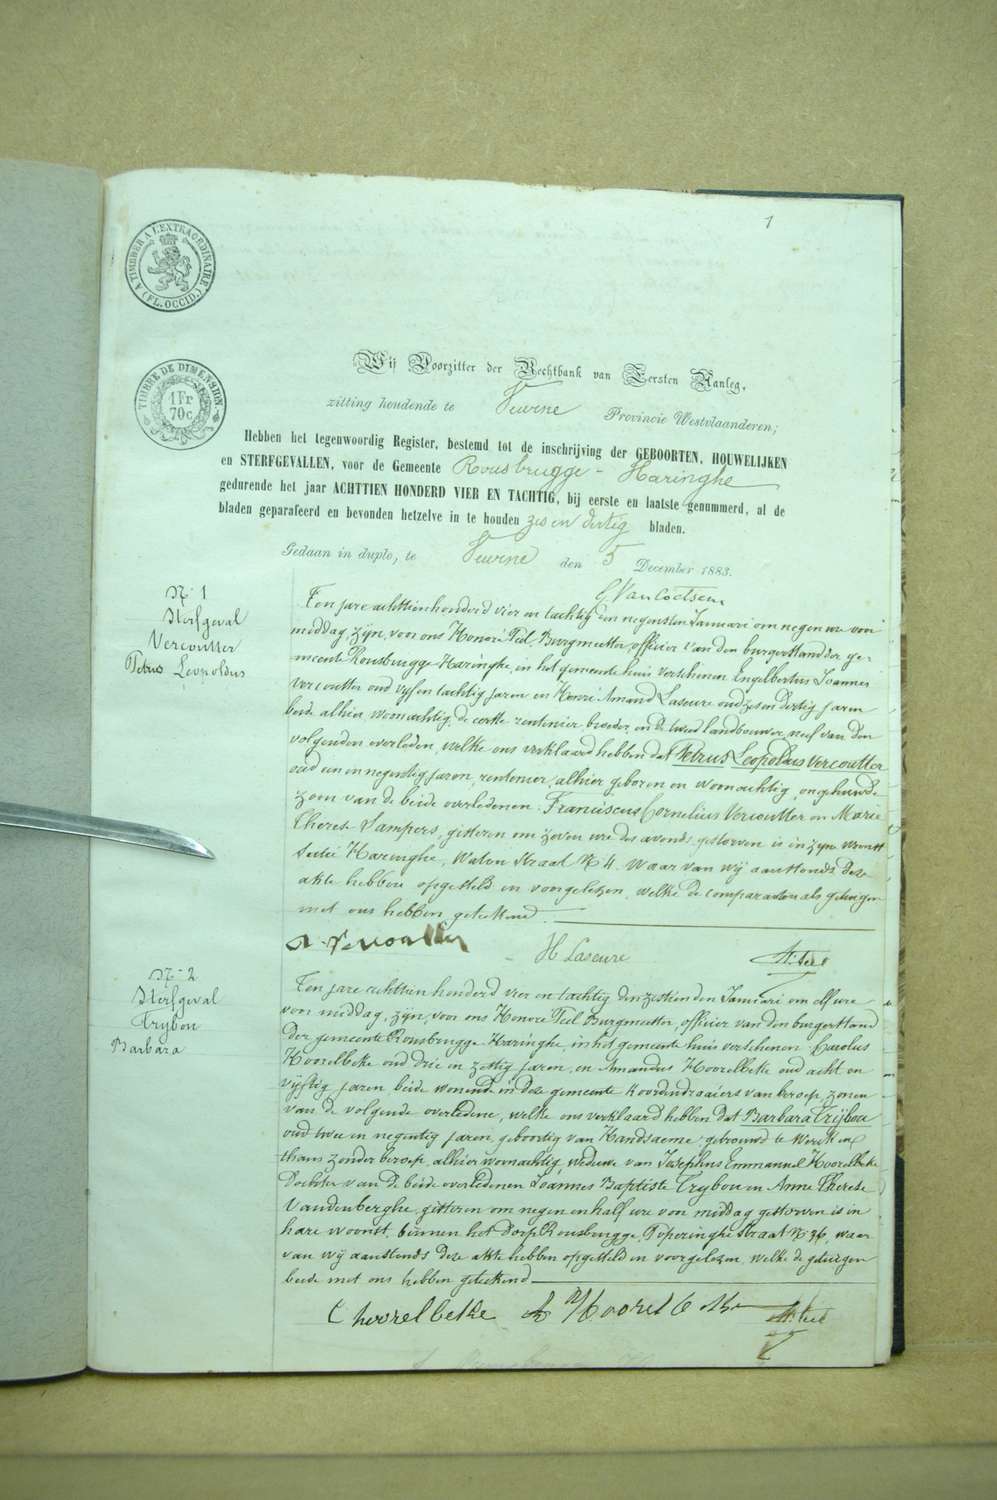 1
A TIMBRER A L'EXTRAORDINAIRE
(FL. OCCID.)
TIMBRE DE DIMENSION
1 Fr
70c
Wij Voorzitter der Rechtbank van Eersten Aanleg,
zitting houdende te Veurne Provincie Westvlaanderen;
Hebben het tegenwoordig Register, bestemd tot de inschrijving der GEBOORTEN, HOUWELIJKEN
en STERFGEVALLEN, voor de Gemeente Rousbrugge-Haringhe
gedurende het jaar ACHTTIEN HONDERD VIER EN TACHTIG, bij eerste en laatste genummerd, al de
bladen geparafeerd en bevonden hetzelve in te houden zes en dertig bladen.
Gedaan in duplo, te Veurne den 5 December 1883.
N.º 1
Sterfgeval
Vercoutter
Petrus Leopoldus
Ten jare achttien honderd vier en tachtig den negensten Januari om negen ure voor
middag, zyn, voor ons Honoré Teil, Burgmeester, officier van den burgerstand der ge-
meente Rousbrugge-Haringhe, in het gemeente huis verschenen Engelbertus Joannes
Vercoutter oud vyf en tachtig jaren en Henri Amand Laseure oud zes en dertig jaren
beide alhier woonachtig, de eerste rentenier broeder, en de tweede landbouwer, neef van den
volgenden overleden, welke ons verklaard hebben dat Petrus Leopoldus Vercoutter
oud een en negentig jaren, rentenier, alhier geboren en woonachtig, ongehuwde
zoon van de beide overledenen Franciscus Cornelius Vercoutter en Marie
Therese Lampers, gisteren om zeven ure des avonds gestorven is in zyne woonst
sectie Haringhe, Waton Straat N 4. Waar van wij aanstonds deze
akte hebben opgesteld en voorgelezen, welke de comparanten als getuigen
met ons hebben geteekend.
Vercoutter H Laseure H. Teil
N.º 2
Sterfgeval
Trybou
Barbara
Ten jare achttien honderd vier en tachtig den zestienden Januari om elf ure
voor middag, zyn, voor ons Honoré Teil Burgmeester, officier van den burgerstand
der gemeente Rousbrugge-Haringhe, in het gemeente huis verschenen Carolus
Hoorelbeke oud drie en zestig jaren, en Amandus Hoorelbeke oud acht en
vyftig jaren beide wonende in deze gemeente koordendraaiers van beroep, zonen
van de volgende overledene, welke ons verklaard hebben dat Barbara Trybou
oud twee en negentig jaren, geboortig van Handsaeme, getrouwd te Werck en
thans zonder beroep, alhier woonachtig, weduwe van Josephus Emmanuel Hoorelbeke
Dochter van de beide overledenen Joannes Baptiste Trybou en Anne Therese
Vandenberghe, gisteren om negen en half ure voor middag gestorven is in
hare woonst, binnen het dorp Rousbrugge, Poperinghe Straat N 36, waar
van wij aanstonds deze akte hebben opgesteld en voorgelezen, welke de getuigen
beide met ons hebben geteekend
C hoorelbeke A Hoorelbeke H. Teil